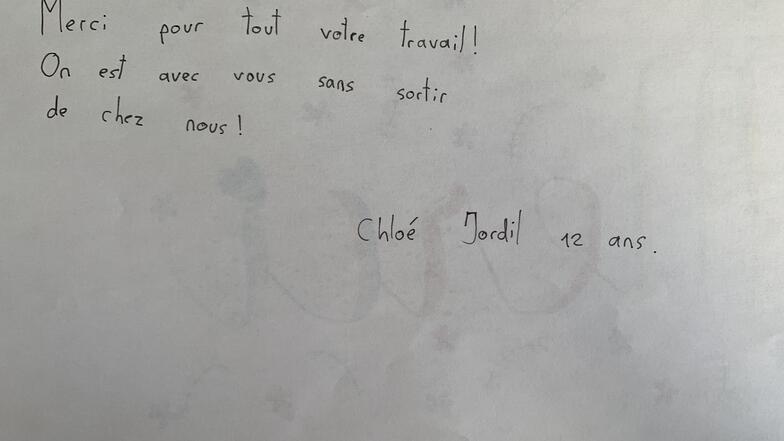 Merci pour tout votre travail!
On est avec vous sans sortir
de chez nous!
Chloé Jordil 12 ans.